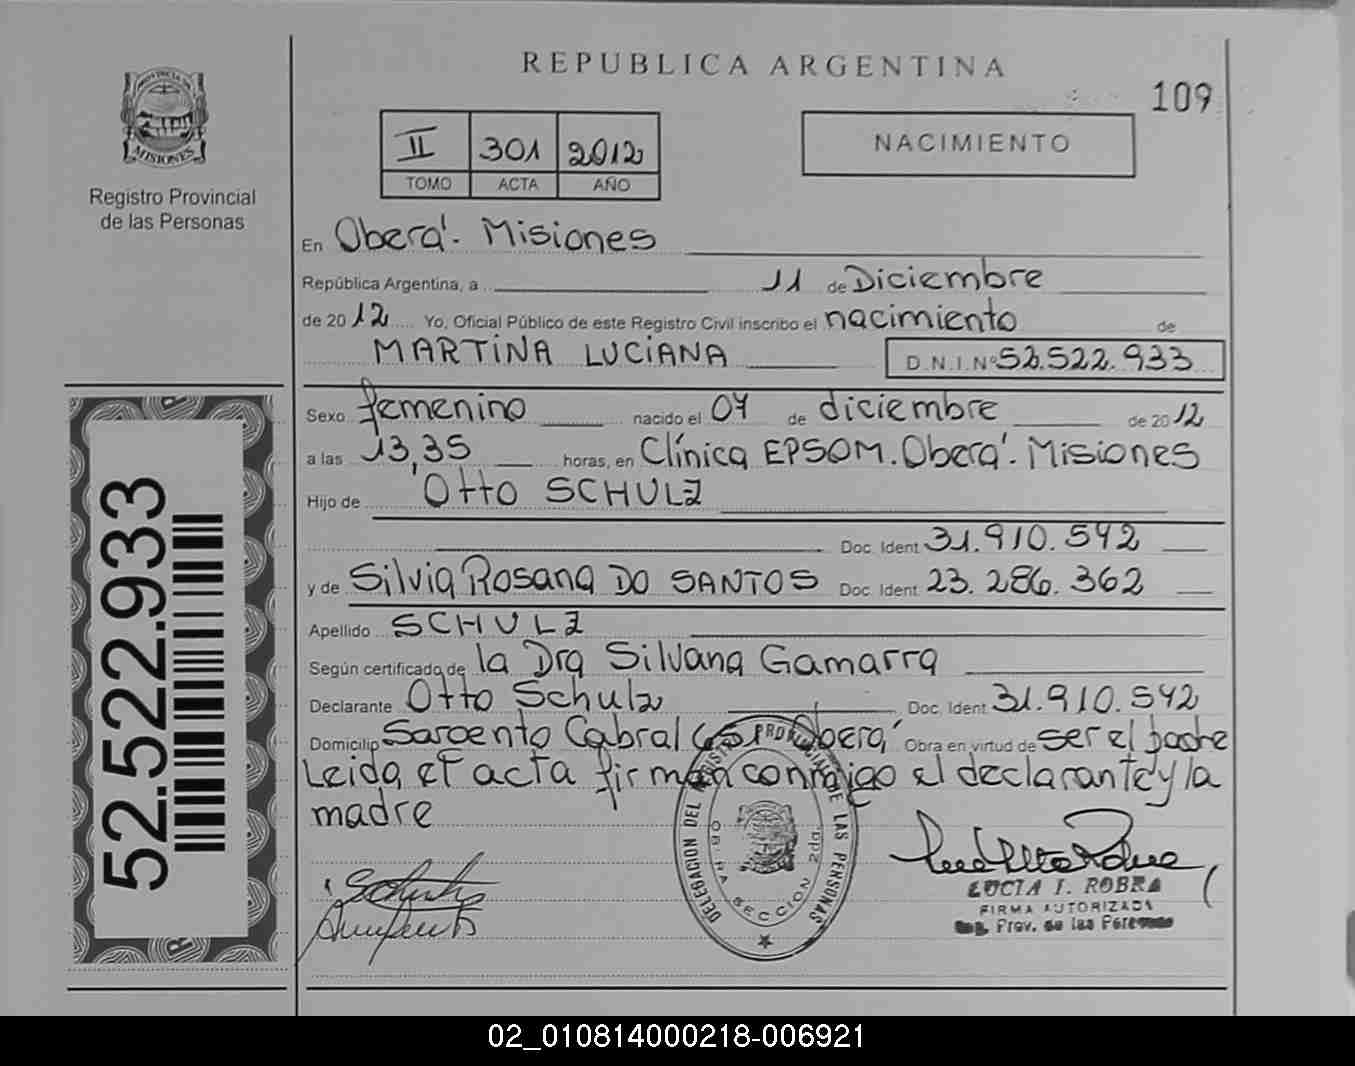 REPUBLICA ARGENTINA
109
PROVINCIA DE
MISIONES
Registro Provincial
de las Personas
II 301 2012
TOMO ACTA AÑO
NACIMIENTO
En Oberá. Misiones
República Argentina, a 11 de Diciembre
de 2012 Yo, Oficial Público de este Registro Civil inscribo el nacimiento de
MARTINA LUCIANA D.N.I. Nº 52.522.933
Sexo femenino nacido el 07 de diciembre de 2012
a las 13,35 horas, en Clínica EPSOM. Oberá. Misiones
Hijo de Otto SCHULZ
Doc. Ident. 31.910.542
y de Silvia Rosana DO SANTOS Doc. Ident. 23.286.362
Apellido SCHULZ
Según certificado de la Dra Silvana Gamarra
Declarante Otto Schulz Doc. Ident. 31.910.542
Domicilio Sargento Cabral Oberá Obra en virtud de ser el padre
Leida el acta firman conmigo el declarante y la
madre
DELEGACION DEL REGISTRO PROVINCIAL DE LAS PERSONAS
OBERA SECCION 2da.
LUCIA I. ROBRA
FIRMA AUTORIZADA
Reg. Prov. de las Personas
52.522.933
02_010814000218-006921